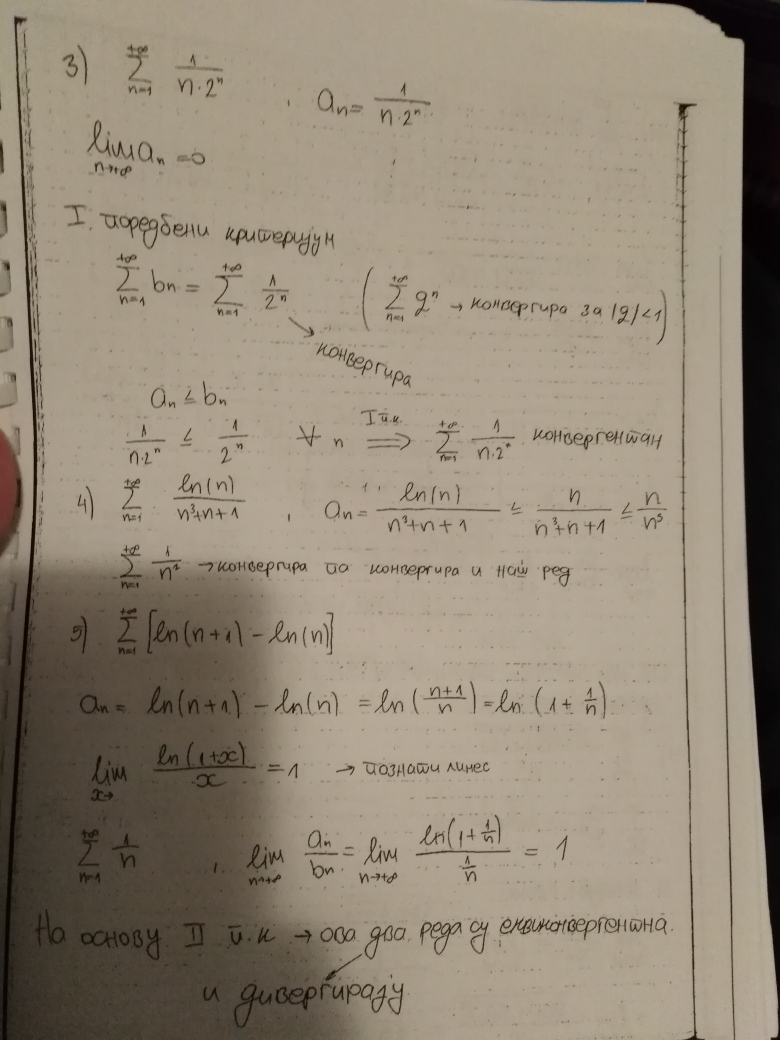 3) $\sum_{n=1}^{+\infty} \frac{1}{n \cdot 2^n}$ , $a_n = \frac{1}{n \cdot 2^n}$
$\lim_{n \to +\infty} a_n = 0$
I. поредбени критеријум
$\sum_{n=1}^{+\infty} b_n = \sum_{n=1}^{+\infty} \frac{1}{2^n}$ ( $\sum_{n=1}^{+\infty} q^n$ → конвергира за |q|<1 )
конвергира
$a_n \le b_n$
$\frac{1}{n \cdot 2^n} \le \frac{1}{2^n}$ ∀ n $\overset{I п.к.}{\Longrightarrow}$ $\sum_{n=1}^{+\infty} \frac{1}{n \cdot 2^n}$ конвергентан
4) $\sum_{n=1}^{+\infty} \frac{\ln(n)}{n^3+n+1}$ , $a_n = \frac{\ln(n)}{n^3+n+1} \le \frac{n}{n^3+n+1} \le \frac{n}{n^3}$
$\sum_{n=1}^{+\infty} \frac{1}{n^2}$ → конвергира па конвергира и наш ред
5) $\sum_{n=1}^{+\infty} [\ln(n+1) - \ln(n)]$
$a_n = \ln(n+1) - \ln(n) = \ln(\frac{n+1}{n}) = \ln(1 + \frac{1}{n})$
$\lim_{x \to} \frac{\ln(1+x)}{x} = 1$ → познати лимес
$\sum_{n=1}^{+\infty} \frac{1}{n}$ , $\lim_{n \to +\infty} \frac{a_n}{b_n} = \lim_{n \to +\infty} \frac{\ln(1+\frac{1}{n})}{\frac{1}{n}} = 1$
На основу II п.к → ова два реда су еквиконвергентна.
и дивергирају